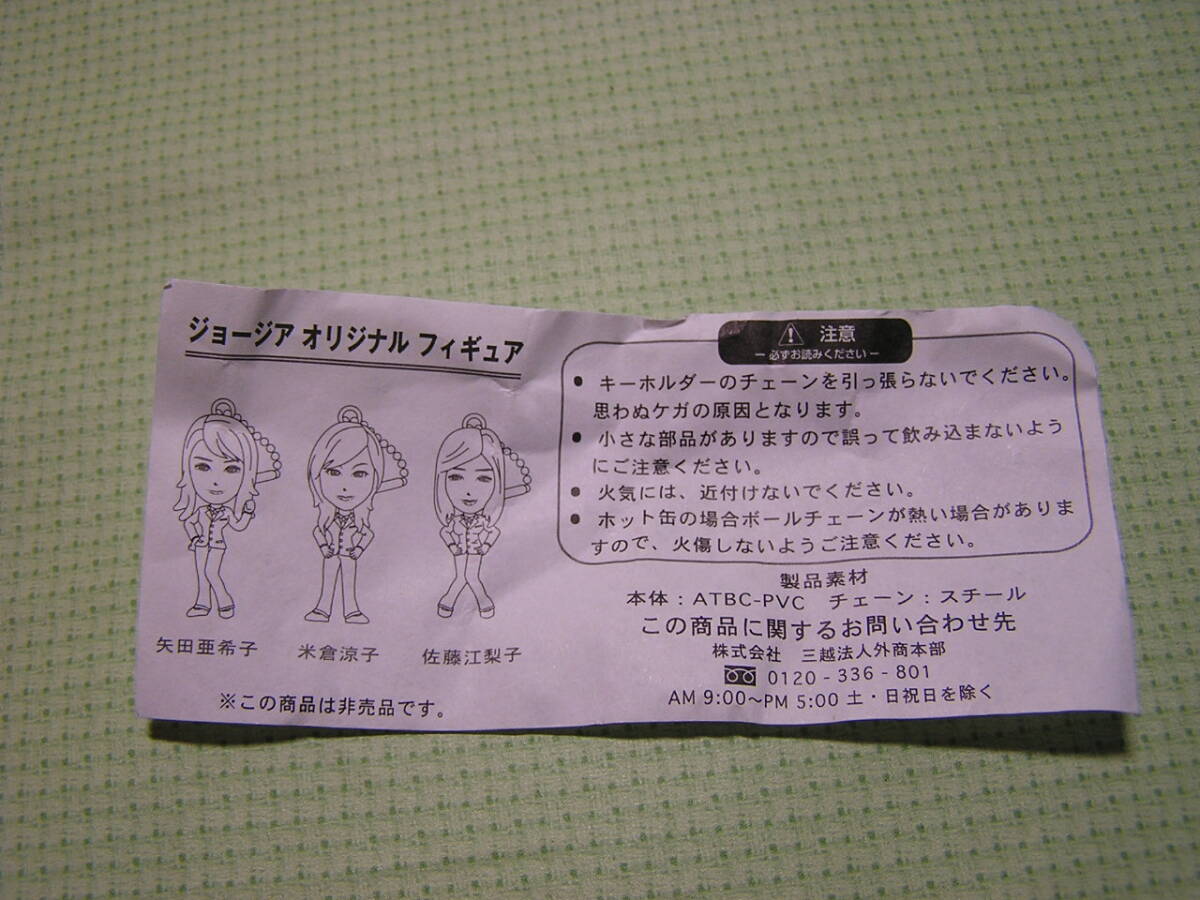 ジョージア オリジナル フィギュア
矢田亜希子
米倉涼子
佐藤江梨子
※この商品は非売品です。
注意
ー必ずお読みくださいー
● キーホルダーのチェーンを引っ張らないでください。
思わぬケガの原因となります。
● 小さな部品がありますので誤って飲み込まないよう
にご注意ください。
● 火気には、近付けないでください。
● ホット缶の場合ボールチェーンが熱い場合がありま
すので、火傷しないようご注意ください。
製品素材
本体：ATBC-PVC チェーン：スチール
この商品に関するお問い合わせ先
株式会社 三越法人外商本部
0120-336-801
AM 9:00〜PM 5:00 土・日祝日を除く